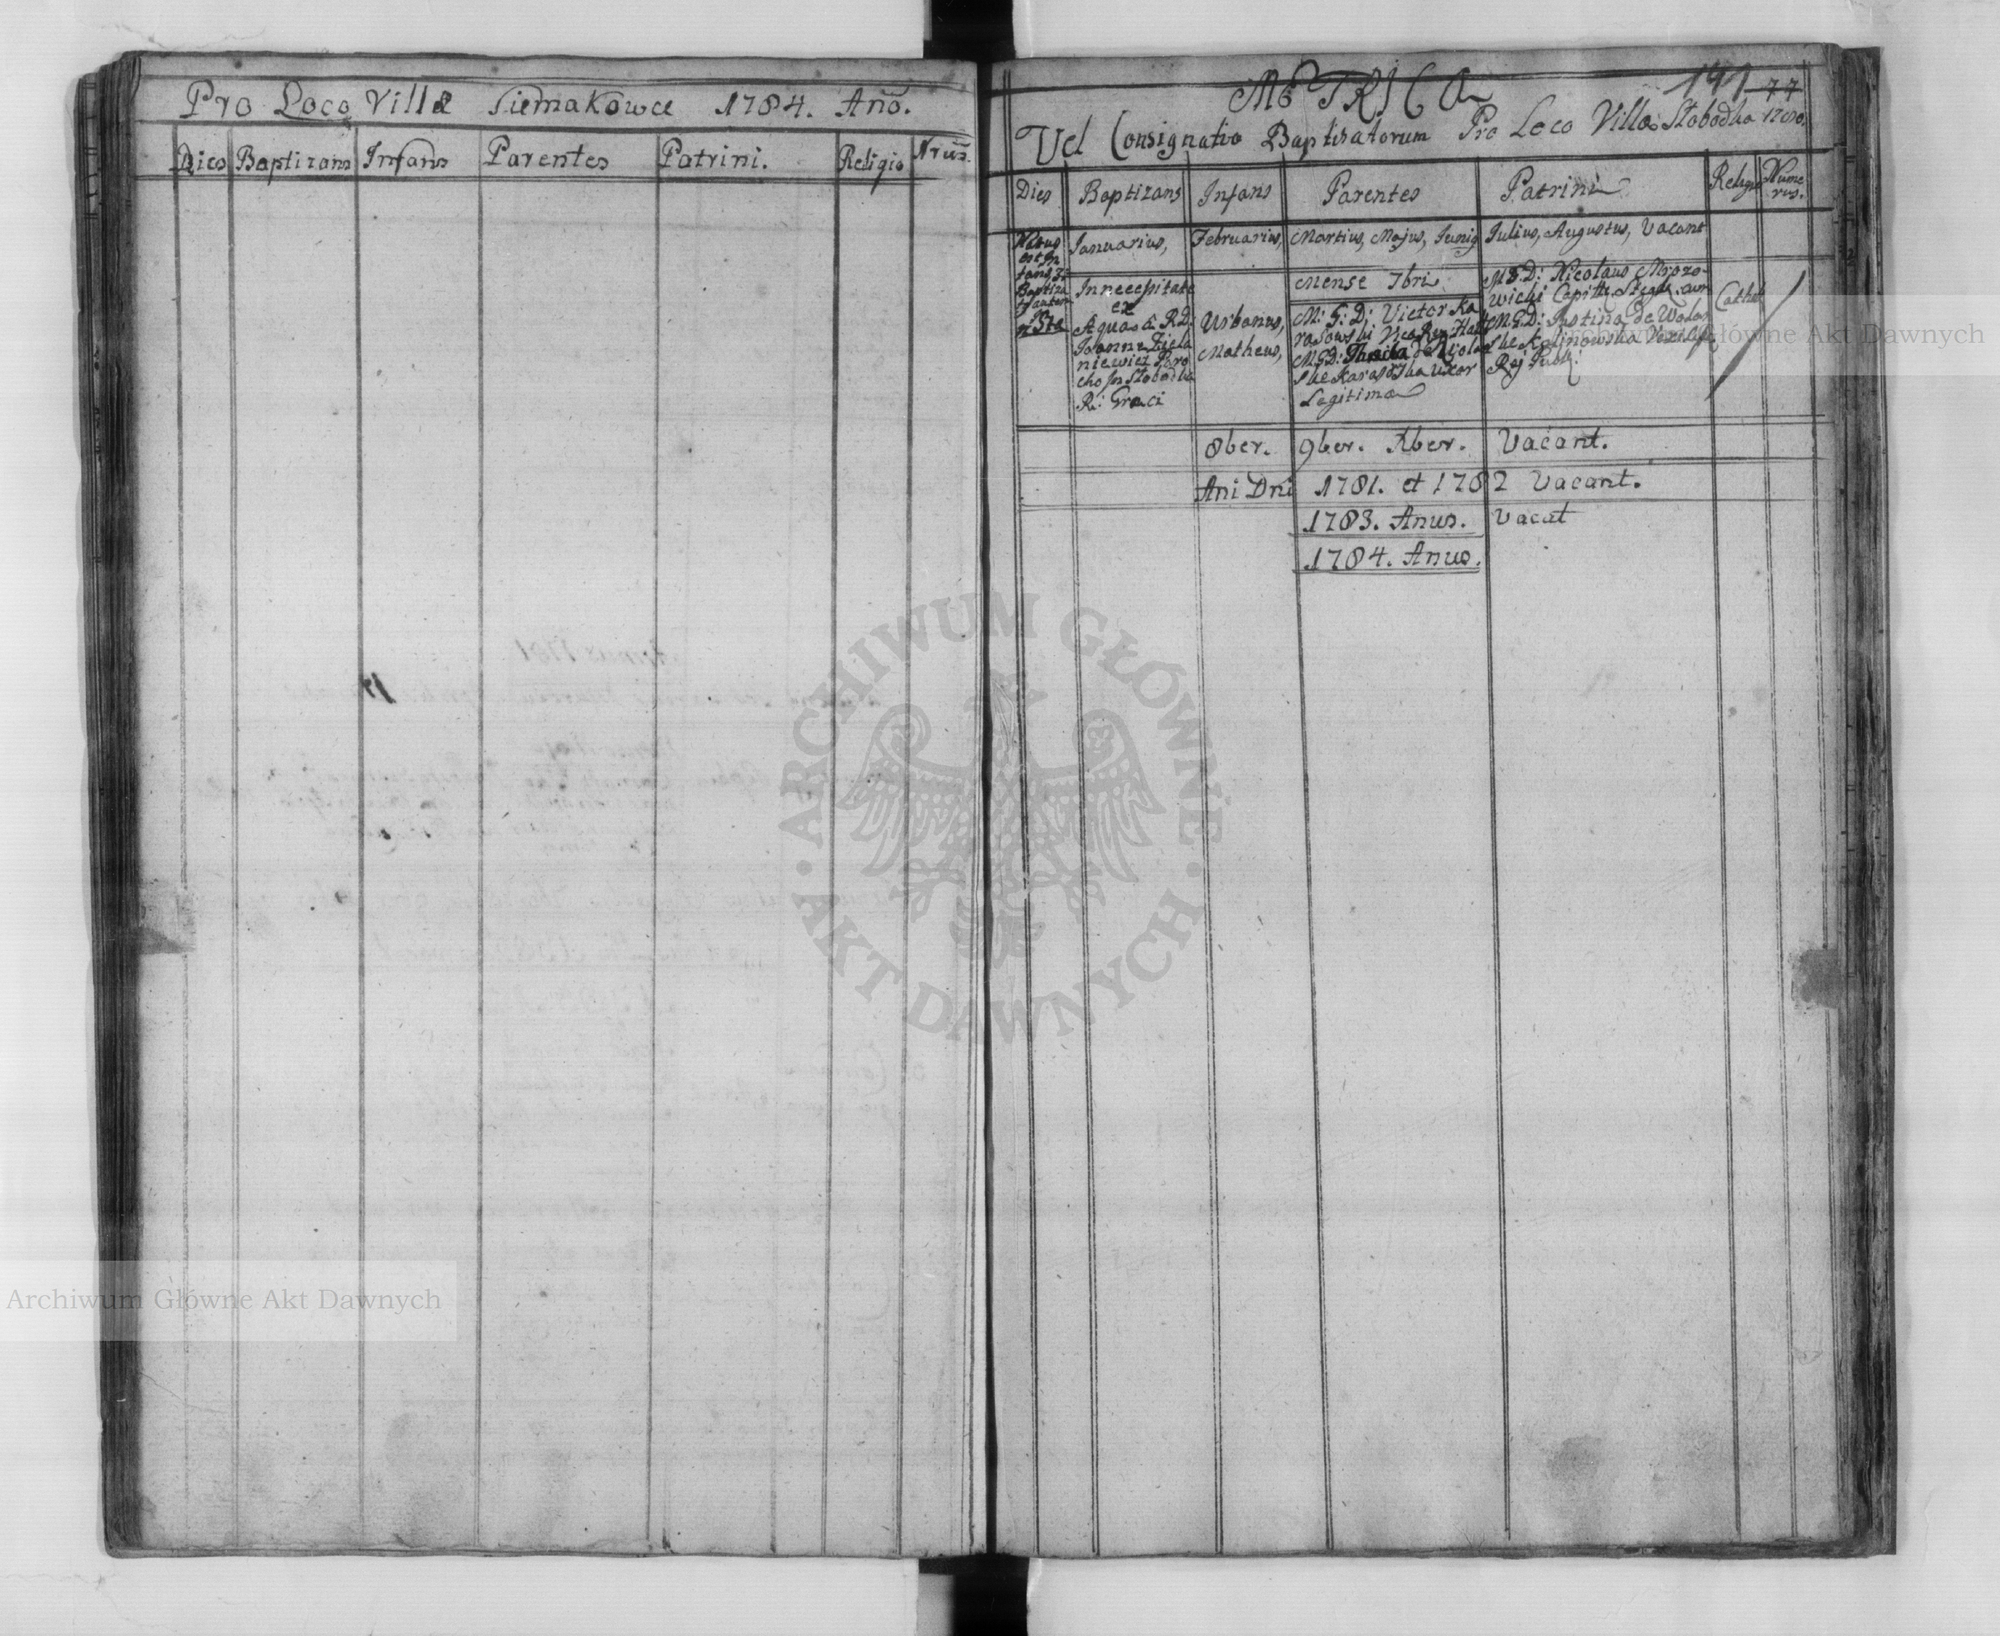 Pro Loco Villa Siemakowce 1784. Año.
Dies Baptizans Infans Parentes Patrini. Religio Nrus.
METRICA
141 77
Vel Consignatio Baptisatorum Pro Loco Villa Słobodka 1780.
Dies Baptizans Infans Parentes Patrini Religio Nume
rus.
Januarius, Februarius, Martius, Majus, Junig Julius, Augustus, Vacant
Natus
est In
fans
Baptiza
tg autem
In neccessitate
ex
Aquas a R.D.
Joanne Ziela
niewicz Paro
cho in Słobodka
R: Græci
Urbanus,
Matheus,
Mense 7bri
M: G: D: Victor Ka
rasowski
M.G.D:
ske Karasoska Uxor
Legitima
M.G.D: Nicolaus Mrozo-
wicki Capitt: Stegn: cum
M.G.D: Justina de Wolos
ske Kalinowska
Rej Publ:
Cathol
8ber. 9ber. Xber. Vacant.
Ani Dni 1781. et 1782 Vacant.
1783. Anus. Vacat
1784. Anus.
ARCHIWUM GŁÓWNE
AKT DAWNYCH
Archiwum Główne Akt Dawnych
Archiwum Główne Akt Dawnych